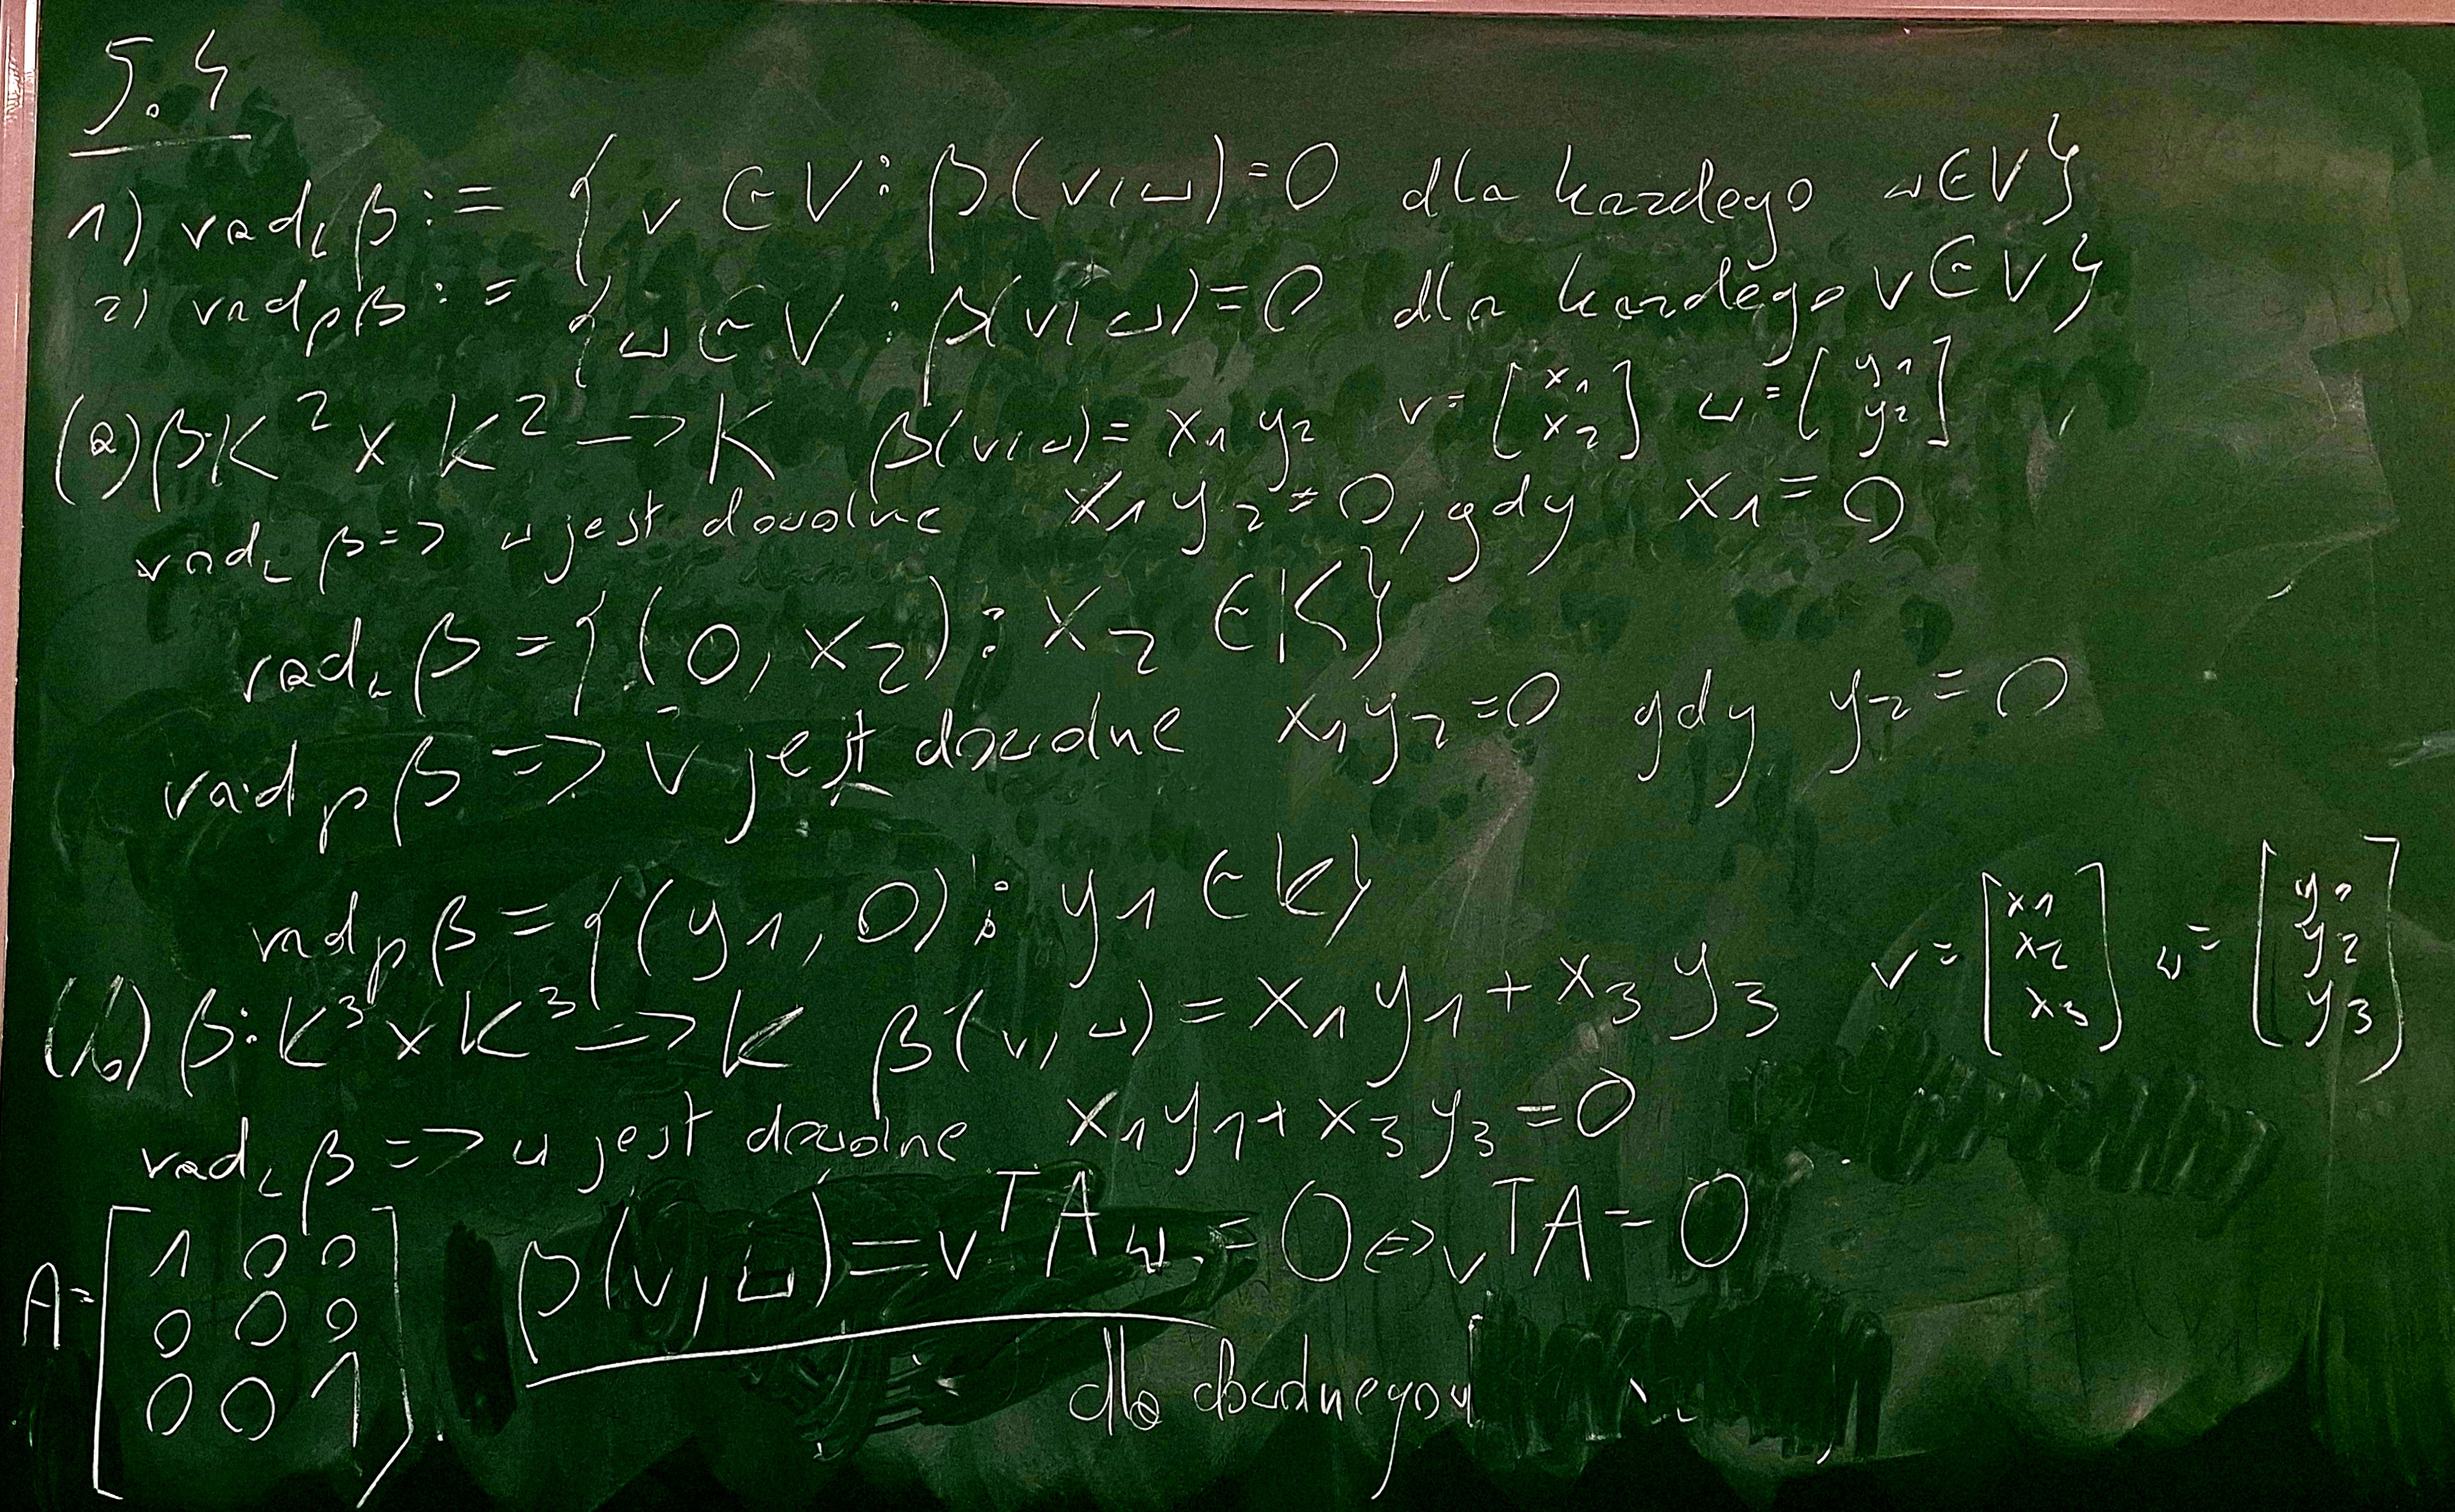 5.4
1) rad_L β := { v ∈ V : β(v, w) = 0 dla każdego w ∈ V }
2) rad_p β := { w ∈ V : β(v, w) = 0 dla każdego v ∈ V }
(a) β: K² × K² → K β(v, w) = x₁y₂ v = [x₁ x₂] w = [y₁ y₂]
rad_L β => w jest dowolne x₁y₂ = 0, gdy x₁ = 0
rad_L β = {(0, x₂) : x₂ ∈ K}
rad_p β => v jest dowolne x₁y₂ = 0 gdy y₂ = 0
rad_p β = {(y₁, 0) : y₁ ∈ K}
(b) β: K³ × K³ → K β(v, w) = x₁y₁ + x₃y₃ v = [x₁ x₂ x₃] w = [y₁ y₂ y₃]
rad_L β => w jest dowolne x₁y₁ + x₃y₃ = 0
A = [1 0 0
0 0 0
0 0 1] β(v, w) = vᵀAw = 0 <=> vᵀA = 0
dla dowolnego w